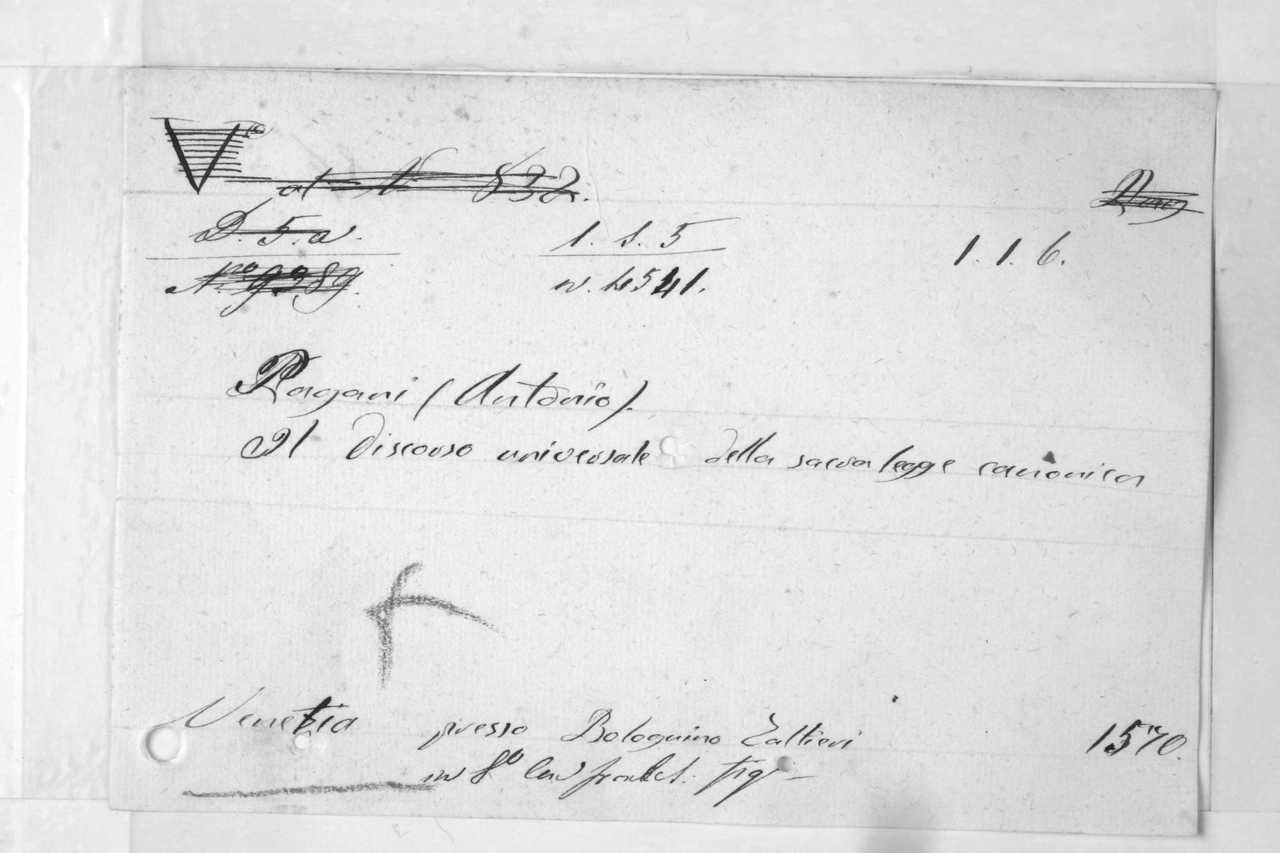 V.e
al N 832.
D. 5. a. 1. 1. 5 1. 1. 6.
N.ro 9389. n. 4541.
Pagani (Antonio).
Il discorso universale della sacra legge canonica
Venetia presso Bolognino Zaltieri 1570.
in 8.o con front. fig.